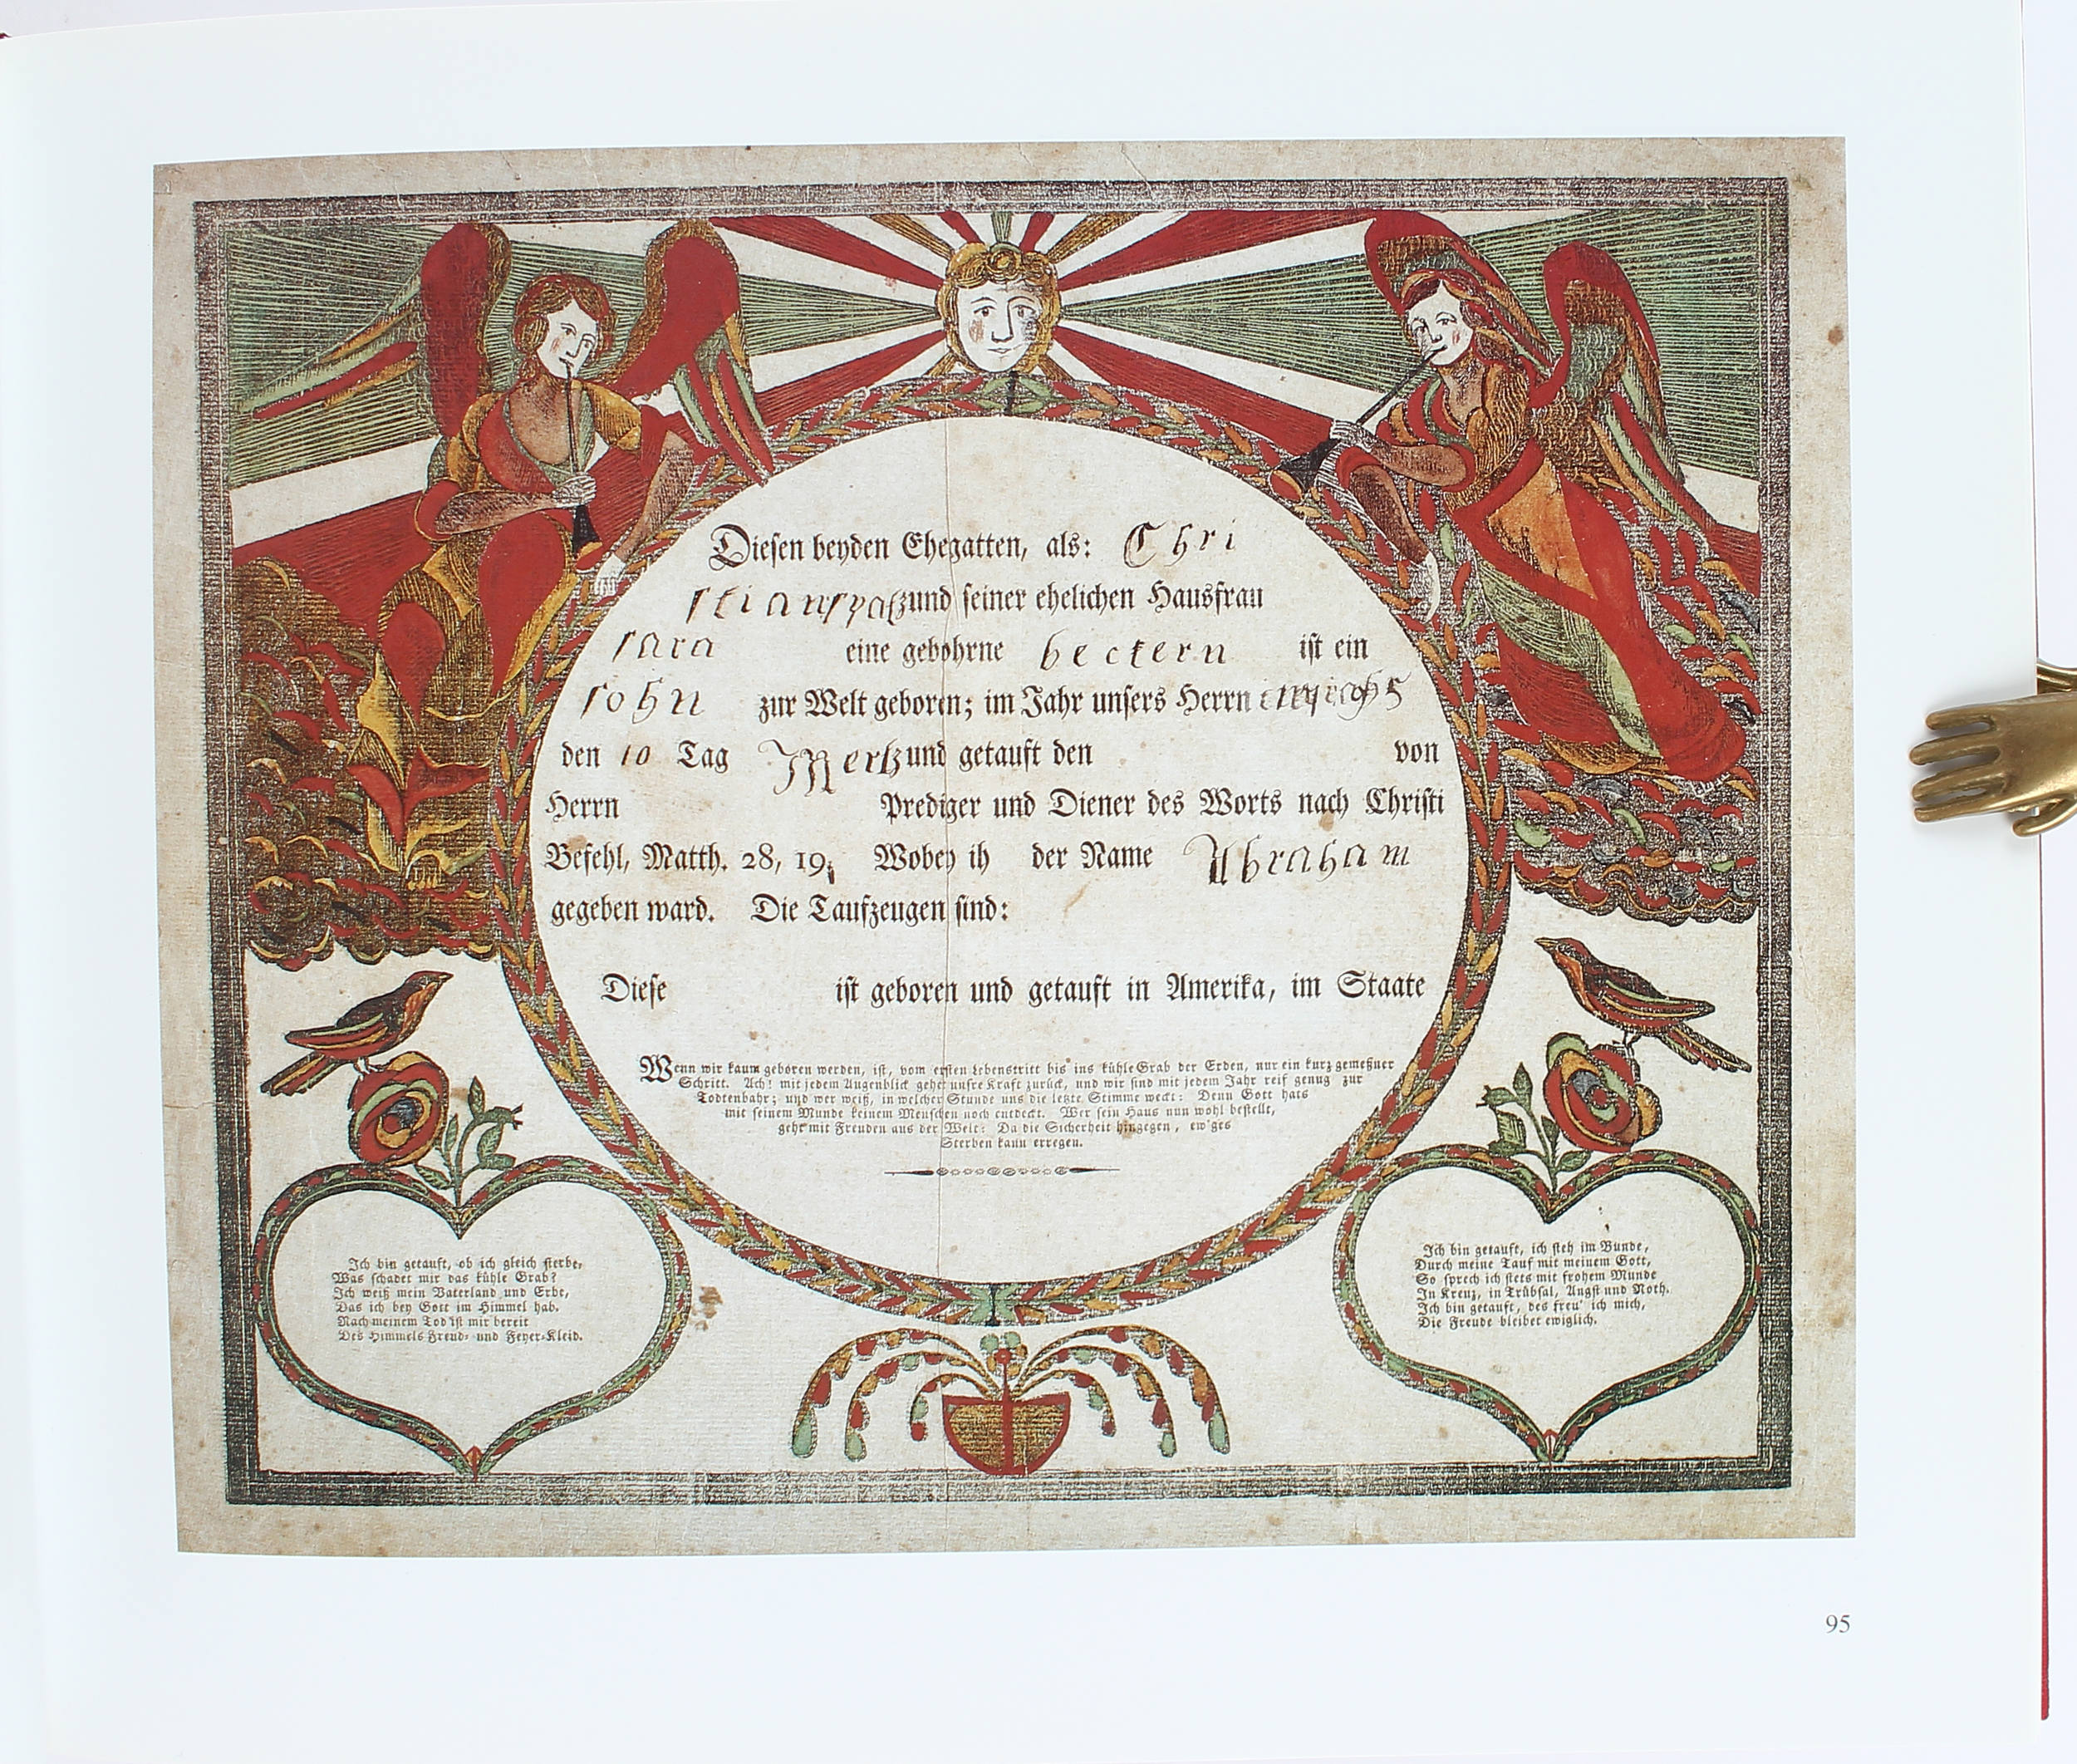 Diesen beyden Ehegatten, als: Chri
stian und seiner ehelichen Hausfrau
sara eine gebohrne beckern ist ein
sohn zur Welt geboren; im Jahr unsers Herrn
den 10 Tag Mertz und getauft den von
Herrn Prediger und Diener des Worts nach Christi
Befehl, Matth. 28, 19. Wobey ih der Name Abraham
gegeben ward. Die Taufzeugen sind:
Diese ist geboren und getauft in Amerika, im Staate
Wenn wir kaum geboren werden, ist, vom ersten Lebenstritt bis ins kühle Grab der Erden, nur ein kurz gemeßner
Schritt. Ach! mit jedem Augenblick gehet unsre Kraft zurück, und wir sind mit jedem Jahr reif genug zur
Todtenbahr; und wer weiß, in welcher Stunde uns die letzte Stimme weckt: Denn Gott hats
mit seinem Munde keinem Menschen noch entdeckt. Wer sein Haus nun wohl bestellt,
geht mit Freuden aus der Welt: Da die Sicherheit hingegen, ew'ges
Sterben kann erregen.
Ich bin getauft, ob ich gleich sterbe,
Was schadet mir das kühle Grab?
Ich weiß mein Vaterland und Erbe,
Das ich bey Gott im Himmel hab.
Nach meinem Tod ist mir bereit
Des Himmels Freud- und Feyer-Kleid.
Ich bin getauft, ich steh im Bunde,
Durch meine Tauf mit meinem Gott,
So sprech ich stets mit frohem Munde
In Kreuz, in Trübsal, Angst und Noth.
Ich bin getauft, des freu' ich mich,
Die Freude bleibet ewiglich.
95